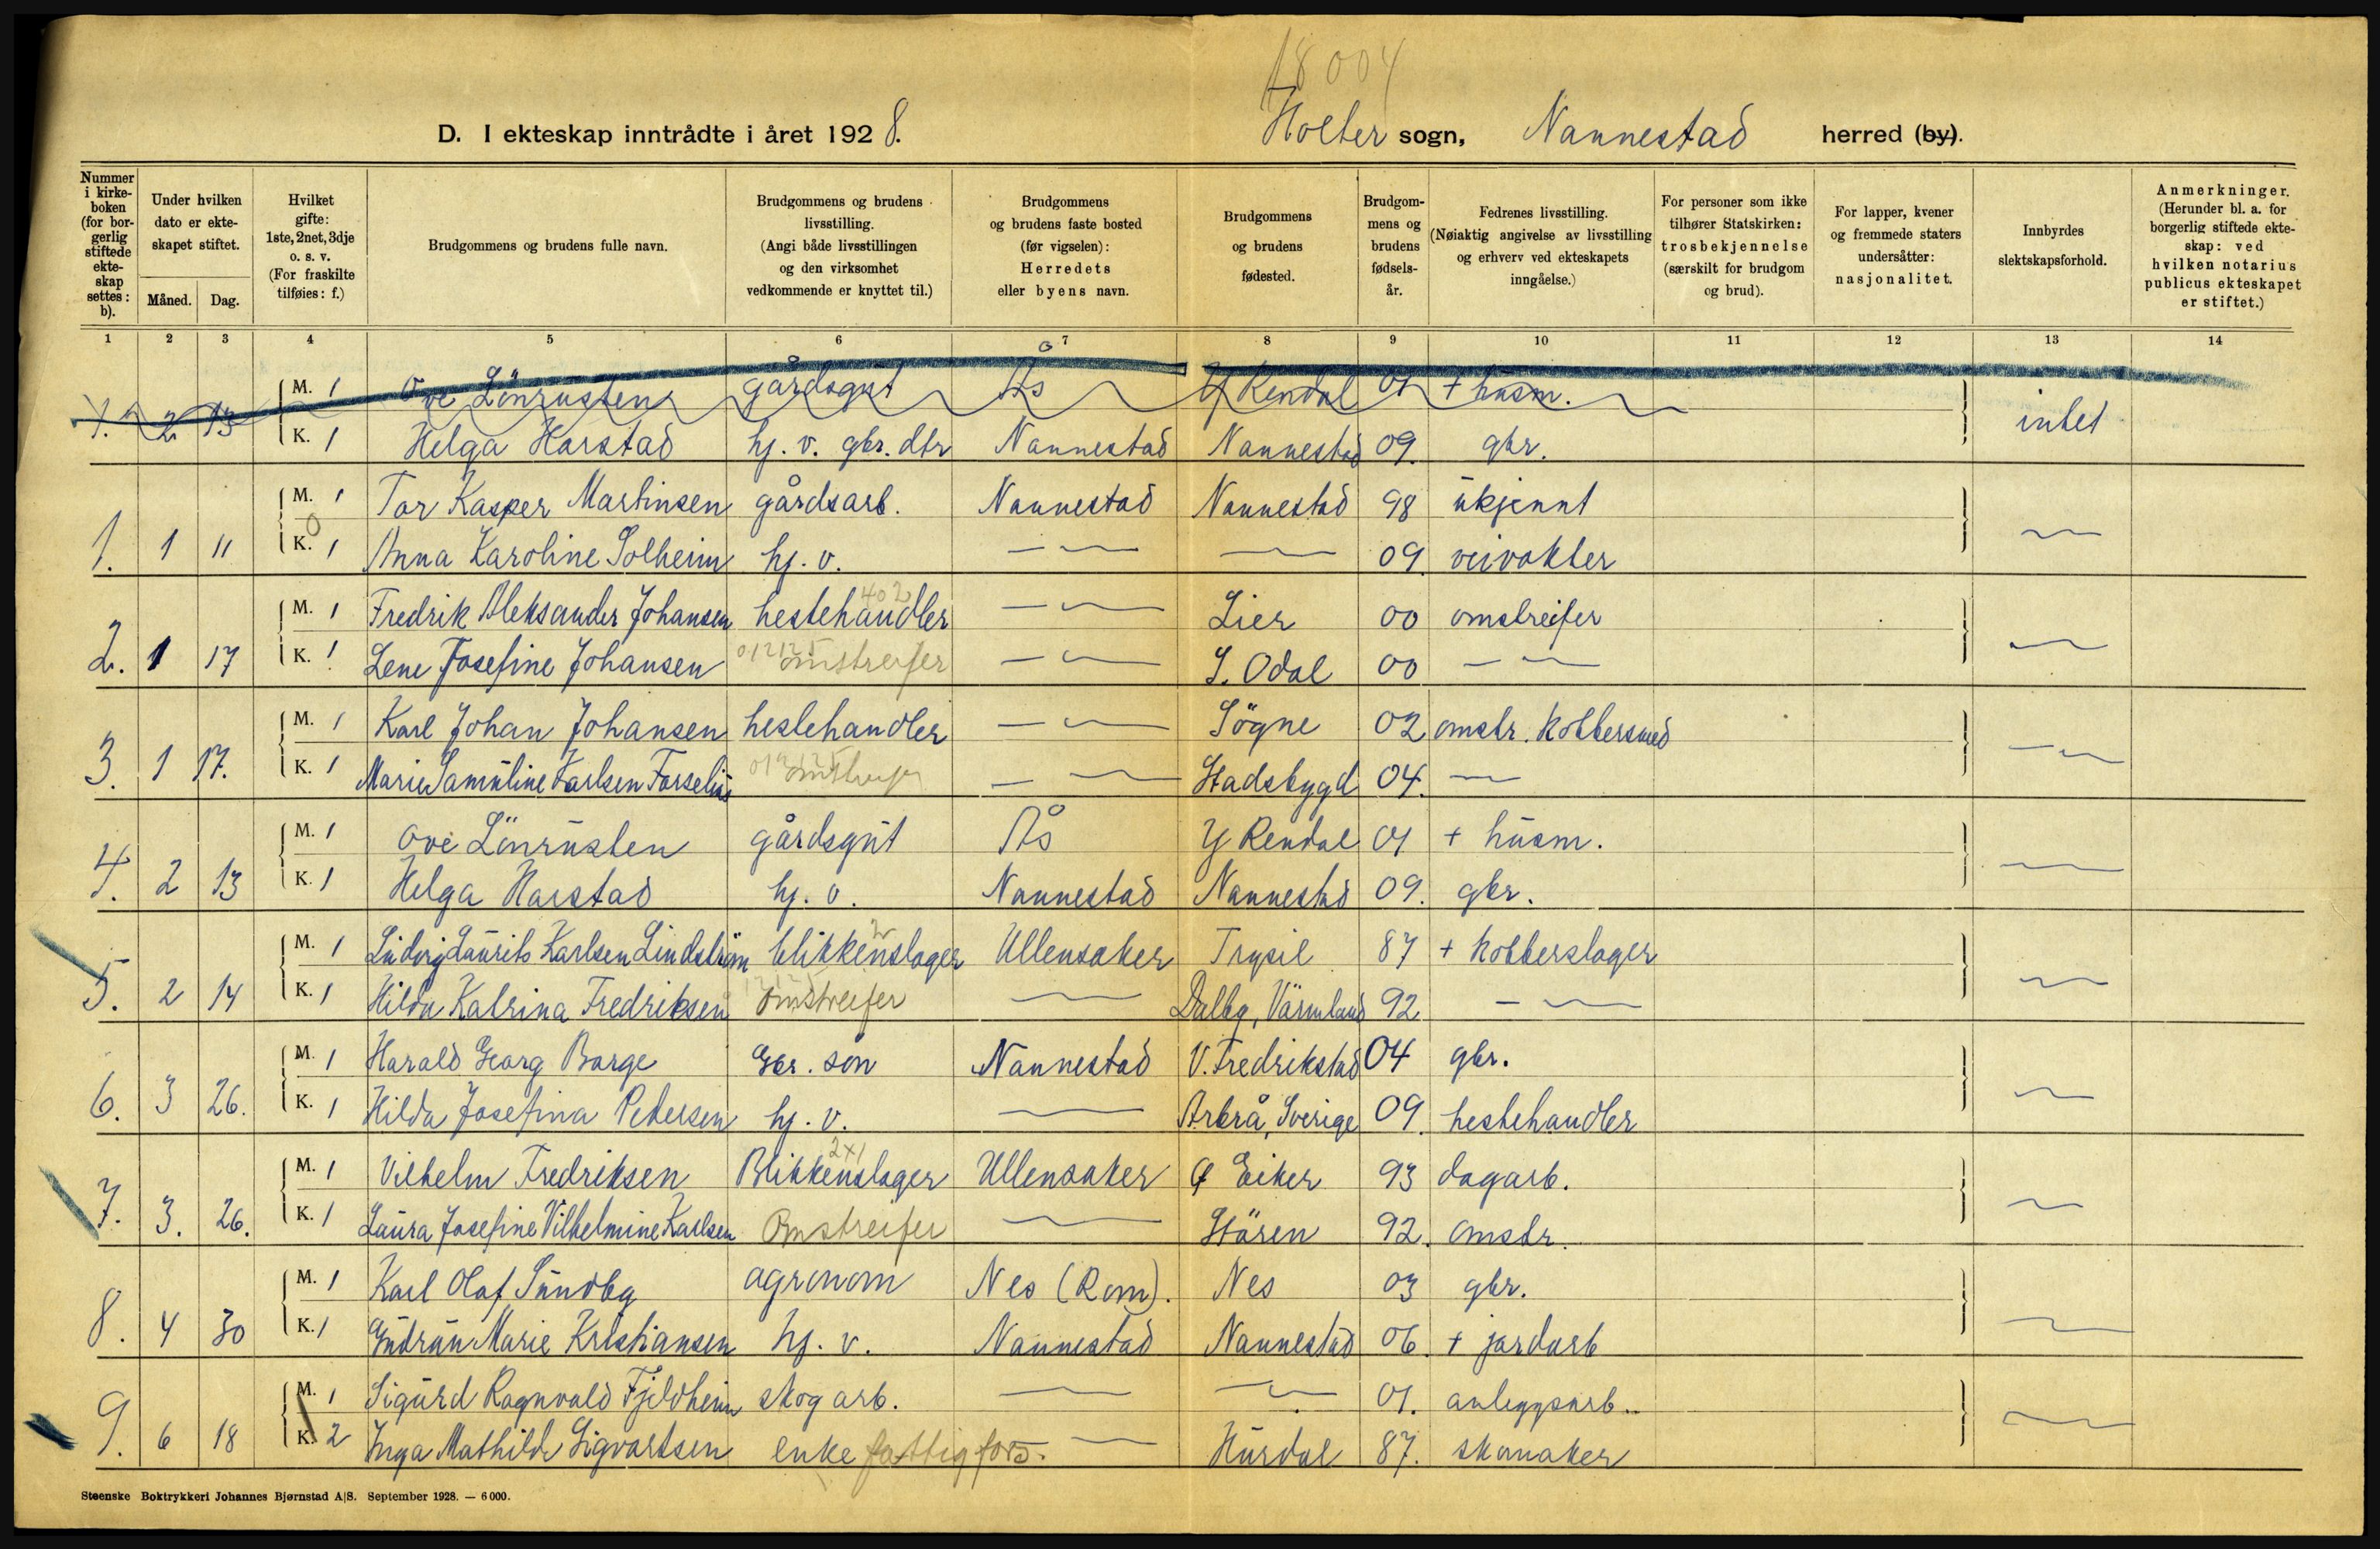 18004
D. I ekteskap inntrådte i året 1928.
Holter sogn, Nannestad herred (by).
Nummer i kirkeboken (for borgerlig stiftede ekteskap settes: b).
Under hvilken dato er ekteskapet stiftet.
Måned. Dag.
Hvilket gifte: 1ste, 2net, 3dje o. s. v. (For fraskilte tilføies: f.)
Brudgommens og brudens fulle navn.
Brudgommens og brudens livsstilling. (Angi både livsstillingen og den virksomhet vedkommende er knyttet til.)
Brudgommens og brudens faste bosted (før vigselen): Herredets eller byens navn.
Brudgommens og brudens fødested.
Brudgommens og brudens fødselsår.
Fedrenes livsstilling. (Nøiaktig angivelse av livsstilling og erhverv ved ekteskapets inngåelse.)
For personer som ikke tilhører Statskirken: trosbekjennelse (særskilt for brudgom og brud).
For lapper, kvener og fremmede staters undersåtter: nasjonalitet.
Innbyrdes slektskapsforhold.
Anmerkninger. (Herunder bl. a. for borgerlig stiftede ekteskap: ved hvilken notarius publicus ekteskapet er stiftet.)
1 2 3 4 5 6 7 8 9 10 11 12 13 14
M. 1 Ove Lönrusten gårdsgut Ås Y Rendal 01 + husm.
1. 2 13 K. 1 Helga Harstad hj. v. gbr. dtr Nannestad Nannestad 09. gbr. intet
M. 1 Tor Kasper Martinsen gårdsarb. Nannestad Nannestad 98 ukjennt
1. 1 11 K. 1 Anna Karoline Solheim hj. v. — — 09. veivokter —
M. 1 Fredrik Aleksander Johansen hestehandler 402 — Lier 00 omstreifer
2. 1 17 K. 1 Lene Josefine Johansen omstreifer — S. Odal 00 — —
M. 1 Karl Johan Johansen hestehandler — Sögne 02 omstr. kobbersmed
3. 1 17. K. 1 Marie Samuline Karlsen Forselius omstreifer — Stadsbygd 04. — —
M. 1 Ove Lönrusten gårdsgut Ås Y Rendal 01 + husm.
4. 2 13 K. 1 Helga Harstad hj. v. Nannestad Nannestad 09. gbr. —
M. 1 Ludvig Laurits Karlsen Lindström blikkenslager Ullensaker Trysil 87 + kobberslager
5. 2 14 K. 1 Hilda Katrina Fredriksen omstreifer — Dalby, Värmland 92. — —
M. 1 Harald Georg Borge Gbr. sön Nannestad V. Fredrikstad 04 gbr.
6. 3 26. K. 1 Hilda Josefina Petersen hj. v. — Arbrå, Sverige 09. hestehandler —
M. 1 Vilhelm Fredriksen Blikkenslager 2x1 Ullensaker Ø Eiker 93 dagarb.
7. 3. 26. K. 1 Laura Josefine Vilhelmine Karlsen Omstreifer — Stören 92. omstr. —
M. 1 Karl Olaf Sundby agronom Nes (Rom). Nes 03 gbr.
8. 4 30 K. 1 Gudrun Marie Kristiansen hj. v. Nannestad Nannestad 06. + jordarb —
M. 1 Sigurd Ragnvald Fjeldheim skogarb. — — 01. anleggsarb.
9. 6 18 K. 2 Inga Mathilde Sigvartsen enke fattigfors. — Hurdal 87. skomaker —
Steenske Boktrykkeri Johannes Bjørnstad A|S. September 1928. — 6000.